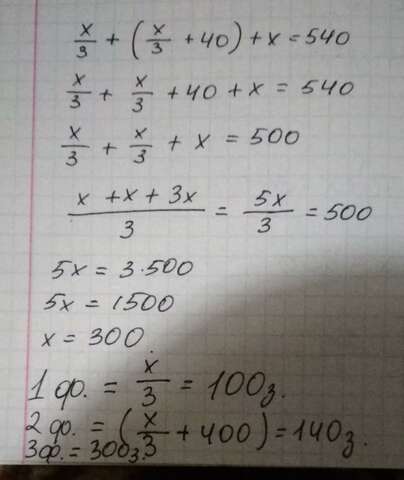 x/3 + (x/3 + 40) + x = 540
x/3 + x/3 + 40 + x = 540
x/3 + x/3 + x = 500
(x + x + 3x)/3 = 5x/3 = 500
5x = 3·500
5x = 1500
x = 300
1 ф. = x/3 = 100г.
2 ф. = (x/3 + 400) = 140г.
3ф. = 300г.